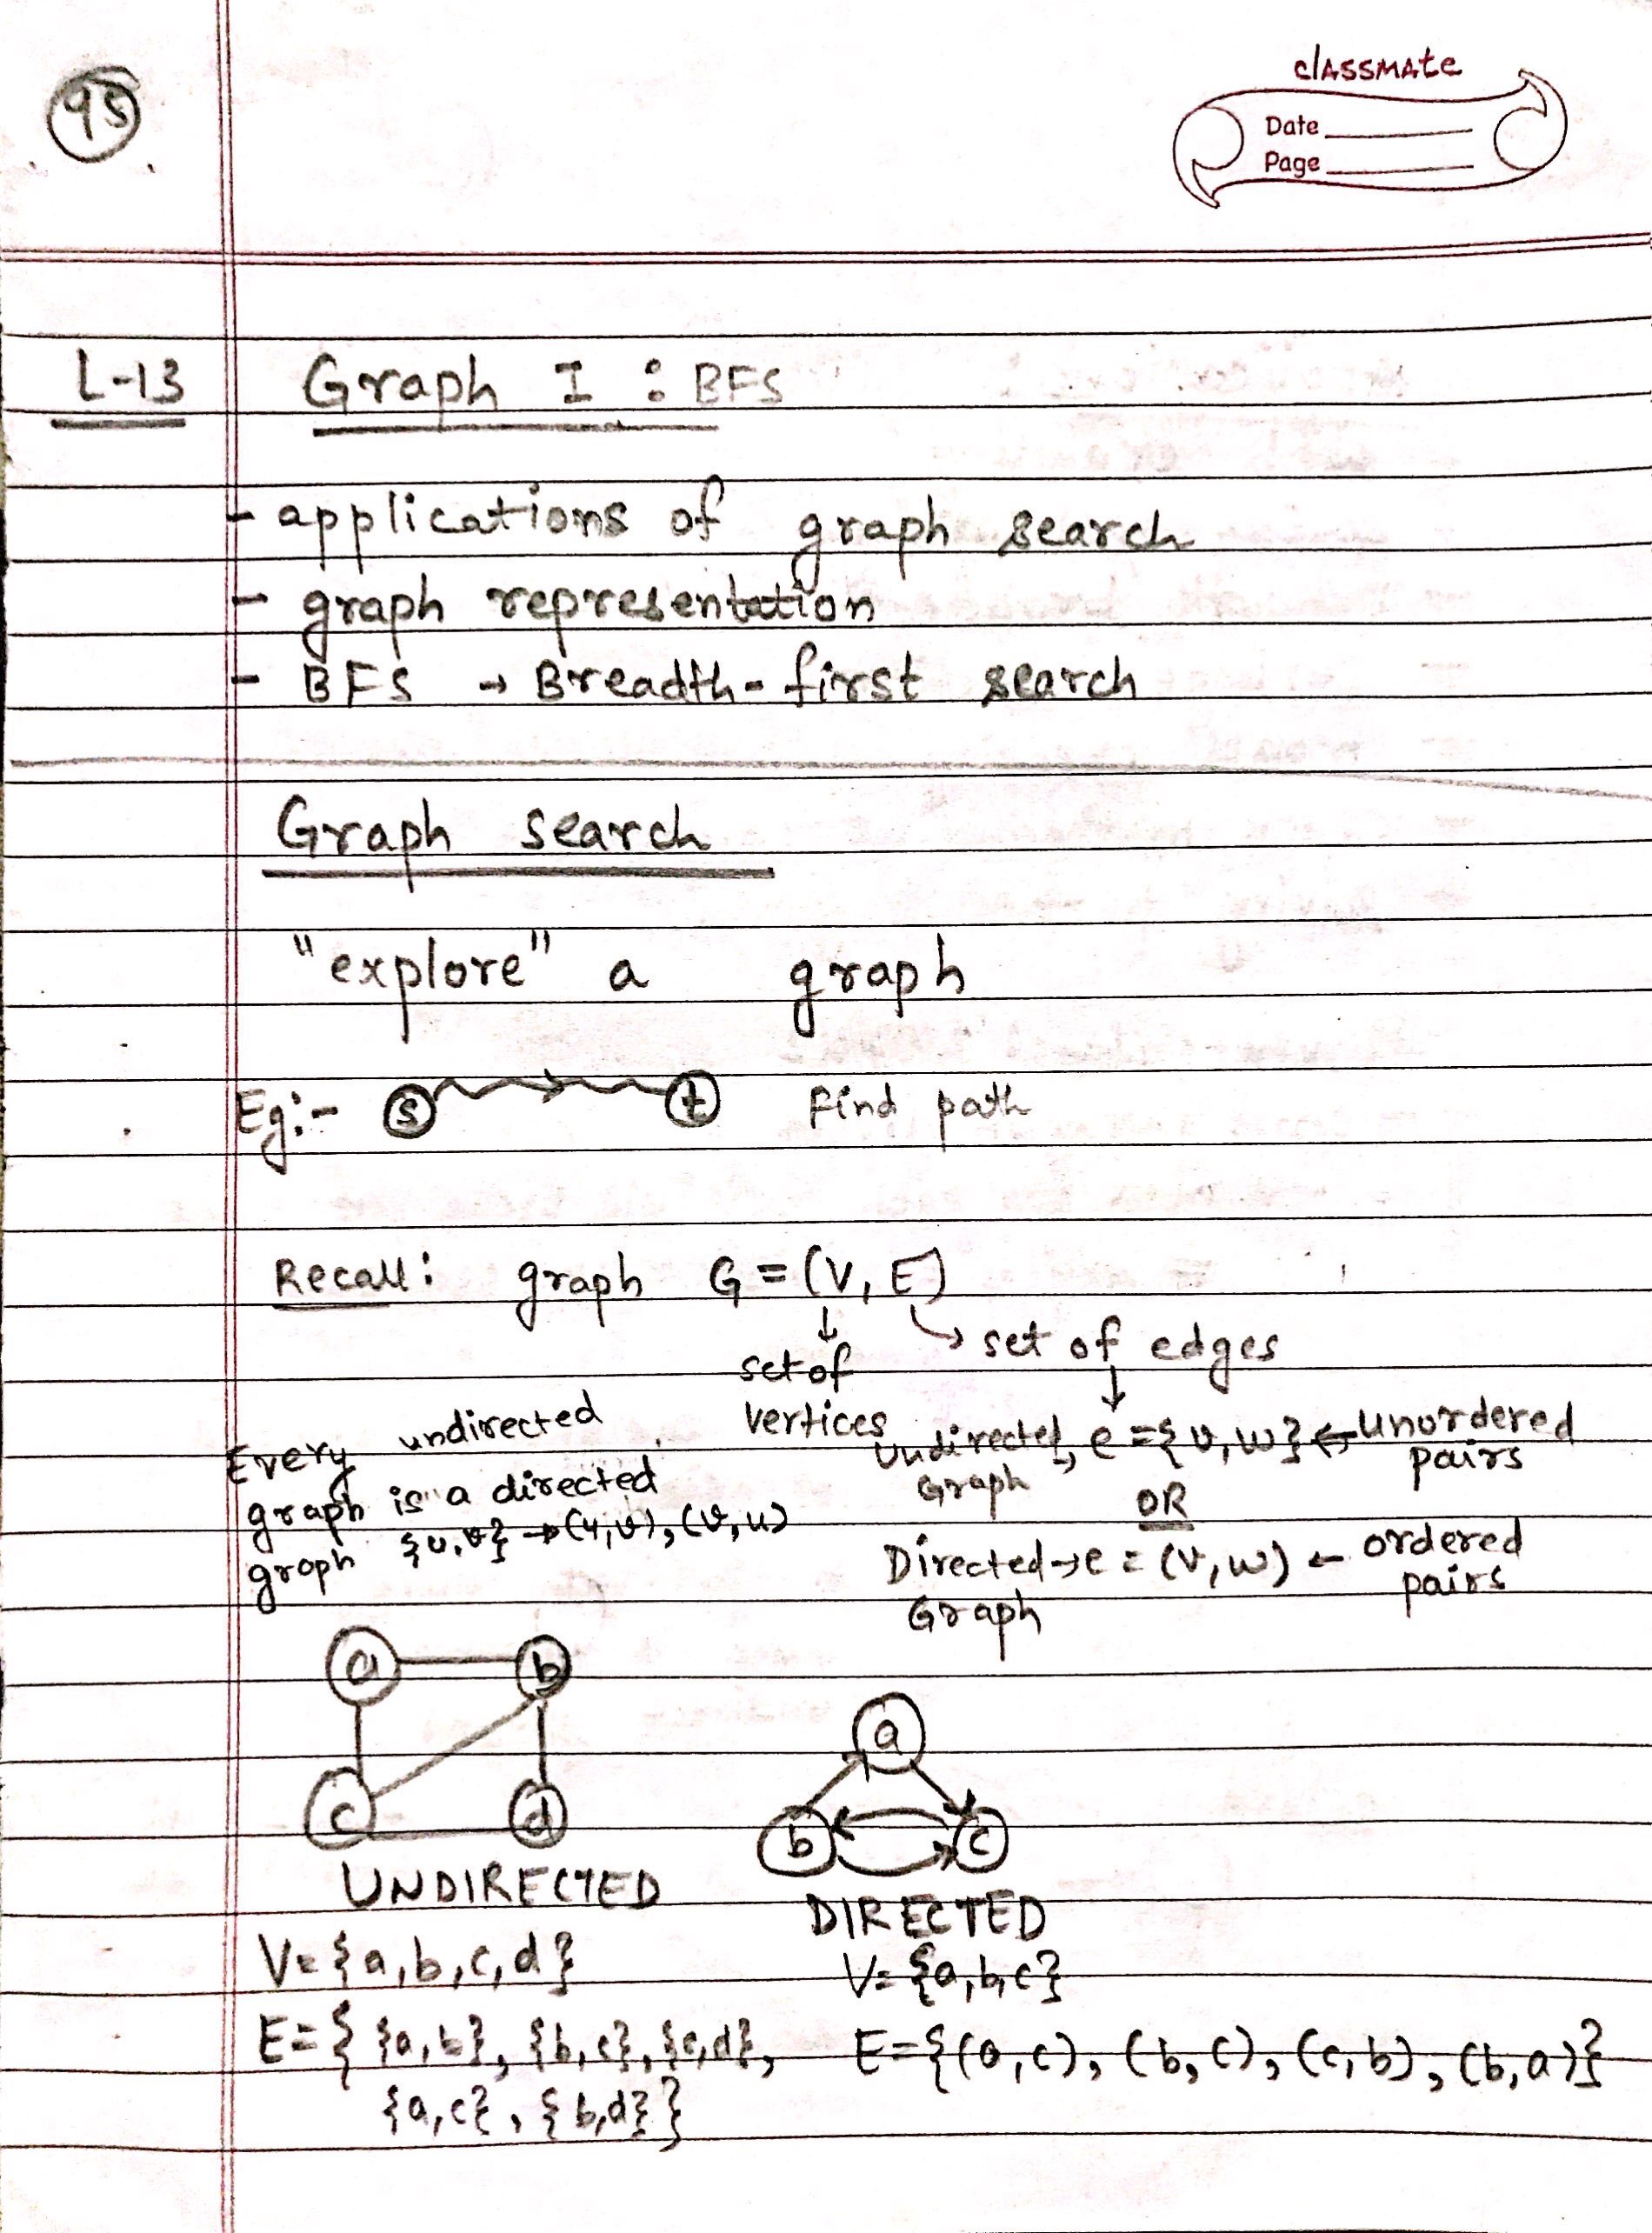 95
classmate
Date
Page
L-13 Graph I : BFS
- applications of graph search
- graph representation
- BFS → Breadth-first search
Graph search
"explore" a graph
Eg:- s t Find path
Recall: graph G = (V, E)
↓ ↳ set of edges
set of vertices
↓
Undirected Graph → e = {v, w} ← unordered pairs
OR
Directed Graph → e = (v, w) ← ordered pairs
Every undirected
graph is a directed
graph {u,v} → (u,v), (v,u)
a b
c d
UNDIRECTED
V = {a,b,c,d}
E = { {a,b}, {b,c}, {c,d},
{a,c}, {b,d} }
a
b c
DIRECTED
V = {a,b,c}
E = {(a,c), (b,c), (c,b), (b,a)}